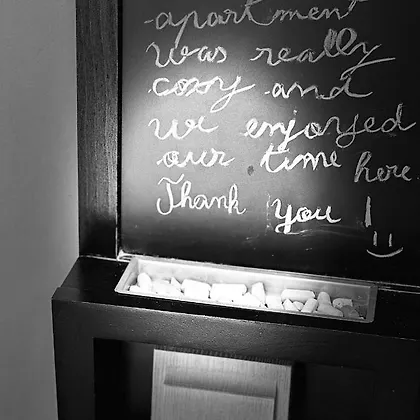 apartment
was really
cozy and
we enjoyed
our time here.
Thank you !
:)